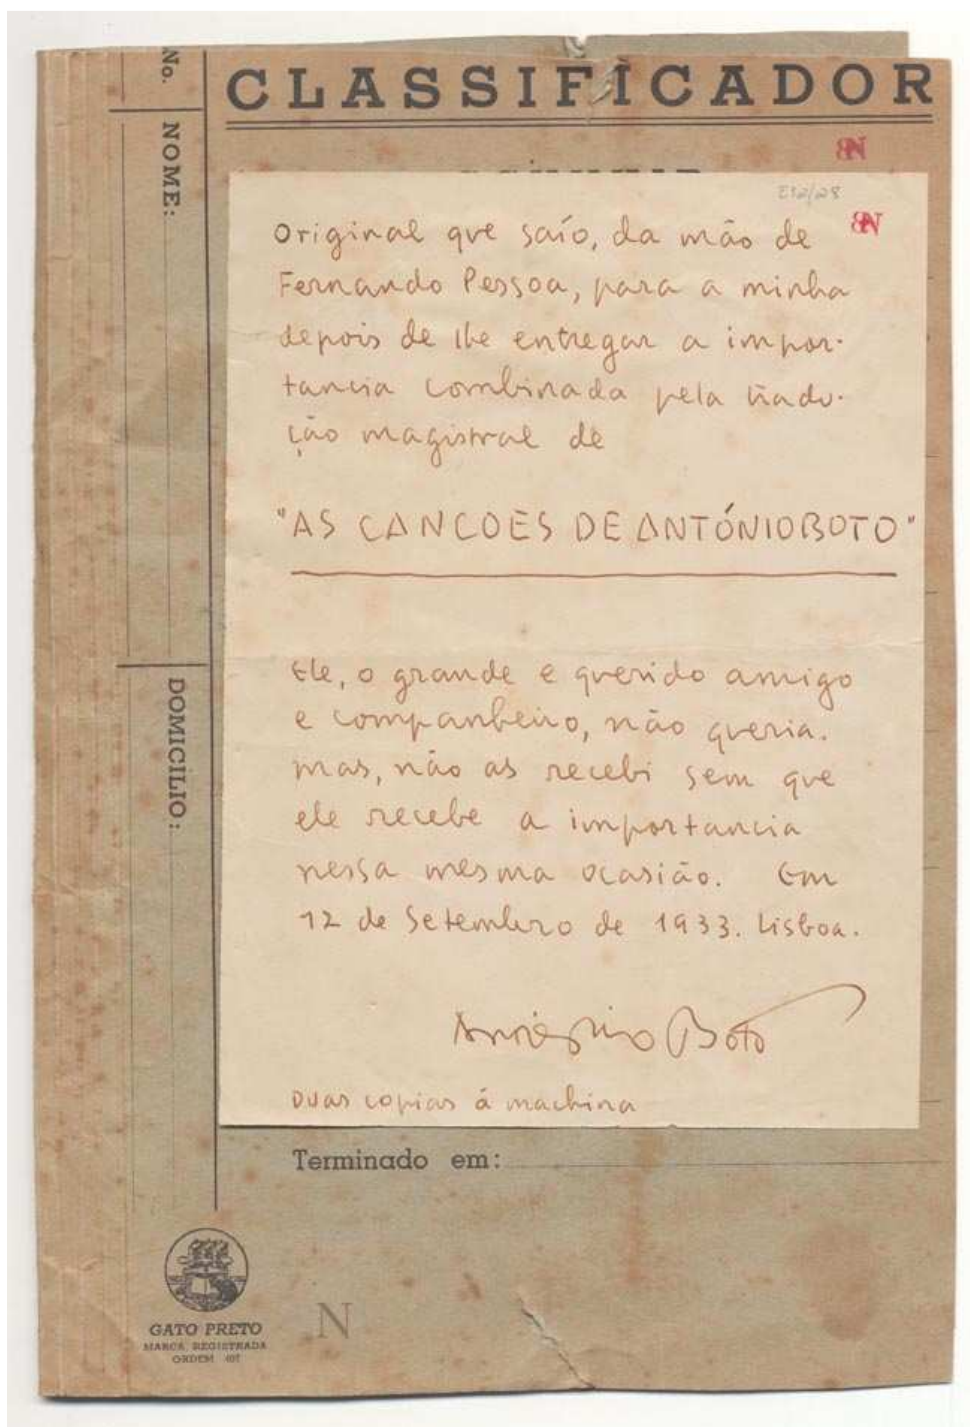 CLASSIFICADOR
No.
NOME:
DOMICILIO:
BN
E12/28
BN
Original que saío, da mão de
Fernando Pessoa, para a minha
depois de lhe entregar a impor-
tancia combinada pela tradu-
ção magistral de
"AS CANCOES DE ANTÓNIO BOTO"
Ele, o grande e querido amigo
e companheiro, não queria.
mas, não as recebi sem que
ele recebe a importancia
nessa mesma ocasião. Em
12 de Setembro de 1933. Lisboa.
António Boto
Duas copias á machina
Terminado em:
GATO PRETO
MARCA REGISTRADA
ORDEM
N